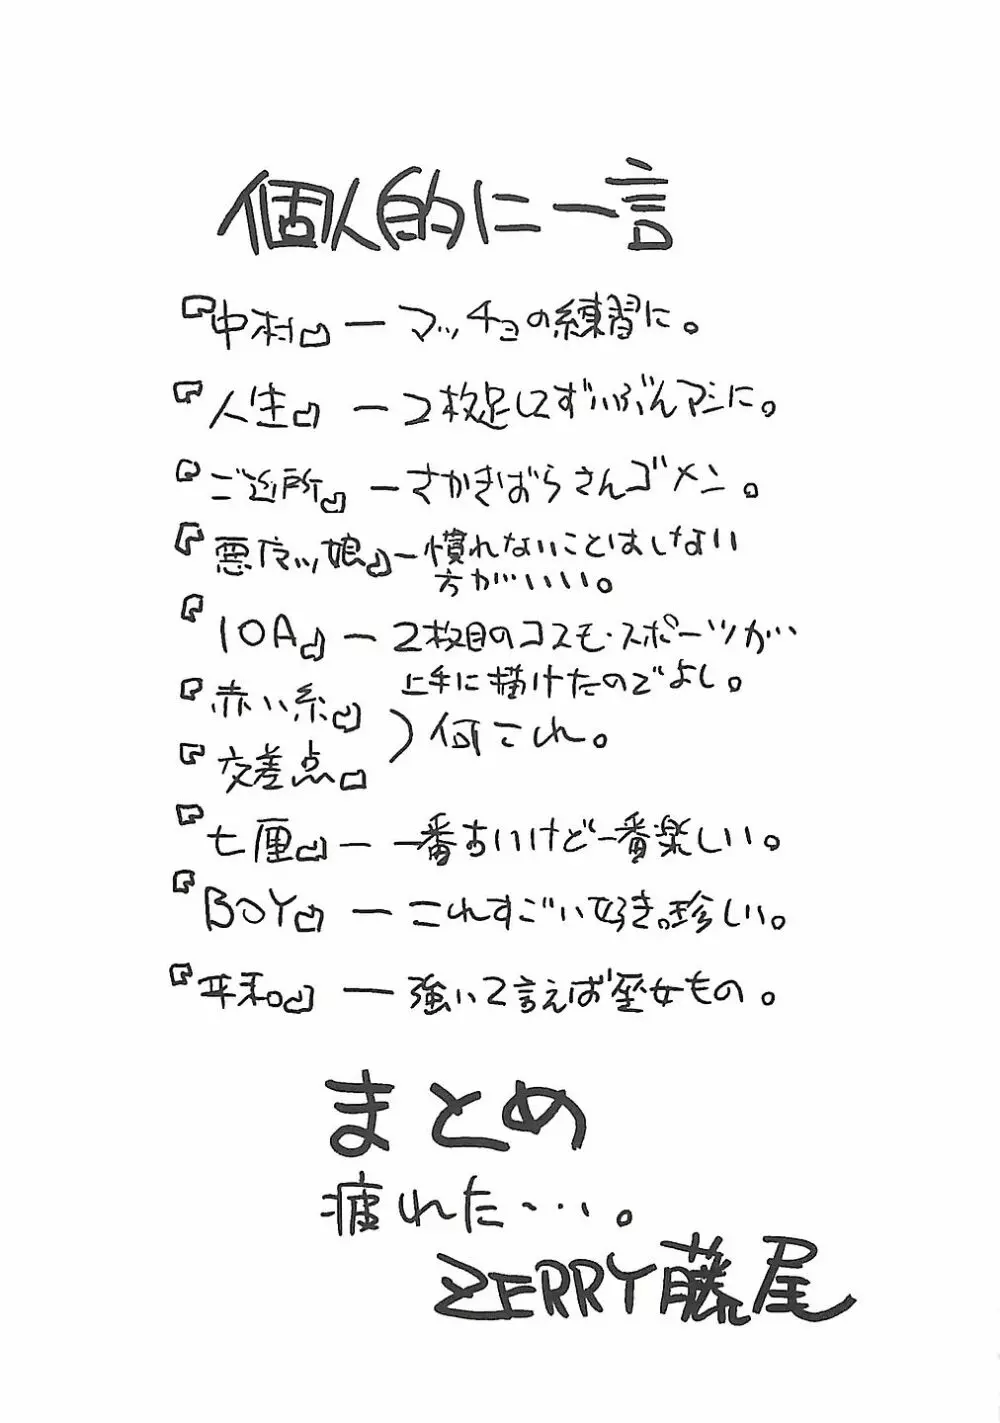 個人的に一言
『中村』― マッチョの練習に。
『人生』― 2枚足してずいぶんマシに。
『ご近所』― さかきばらさんゴメン。
『悪 ッ娘』― 慣れないことはしない
方がいい。
『10A』― 2枚目のコスモ・スポーツが
上手に描けたのでよし。
『赤い糸』
『交差点』
) 何これ。
『七厘』― 一番 いけど一番楽しい。
『BOY』― これすごい好き。珍しい。
『平和』― 強いて言えば 女もの。
まとめ
疲れた…。
ZERRY藤尾